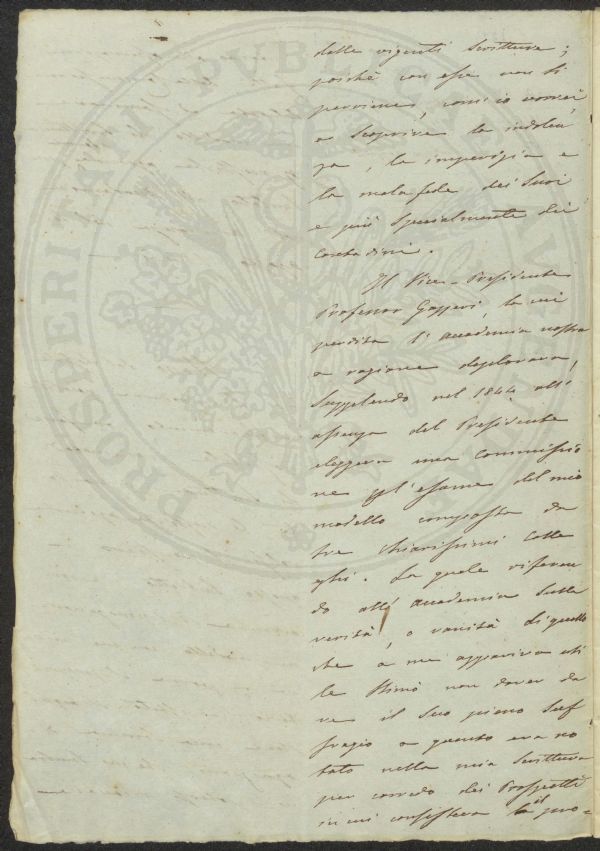 delle vigenti Scritture;
poichè con esse non si
perviene, com'io vorrei
a Scoprire la indolen
za, la imperizia e
la mala fede dei Suoi
e più Specialmente dei
Contadini.
Il Vice-Presidente
Professor Gazzeri, la cui
perdita l'accademia nostra
a ragione deplorava,
Supplendo nel 1844 all'
assenza del Presidente
eleggeva una Commissio
ne p l'esame del mio
modello composta da
tre chiarissimi Colle
ghi. La quale riferen
do all'accademia Sulla
verità, o vanità di quello
che a me appariva uti
le Stimò non dover da
re il Suo pieno Suf
fragio a quanto era no
tato nella mia Scrittura
per corredo dei Prospetti
in cui consisteva il pro-
PROSPERITATI PVBLICAE AVGENDAE